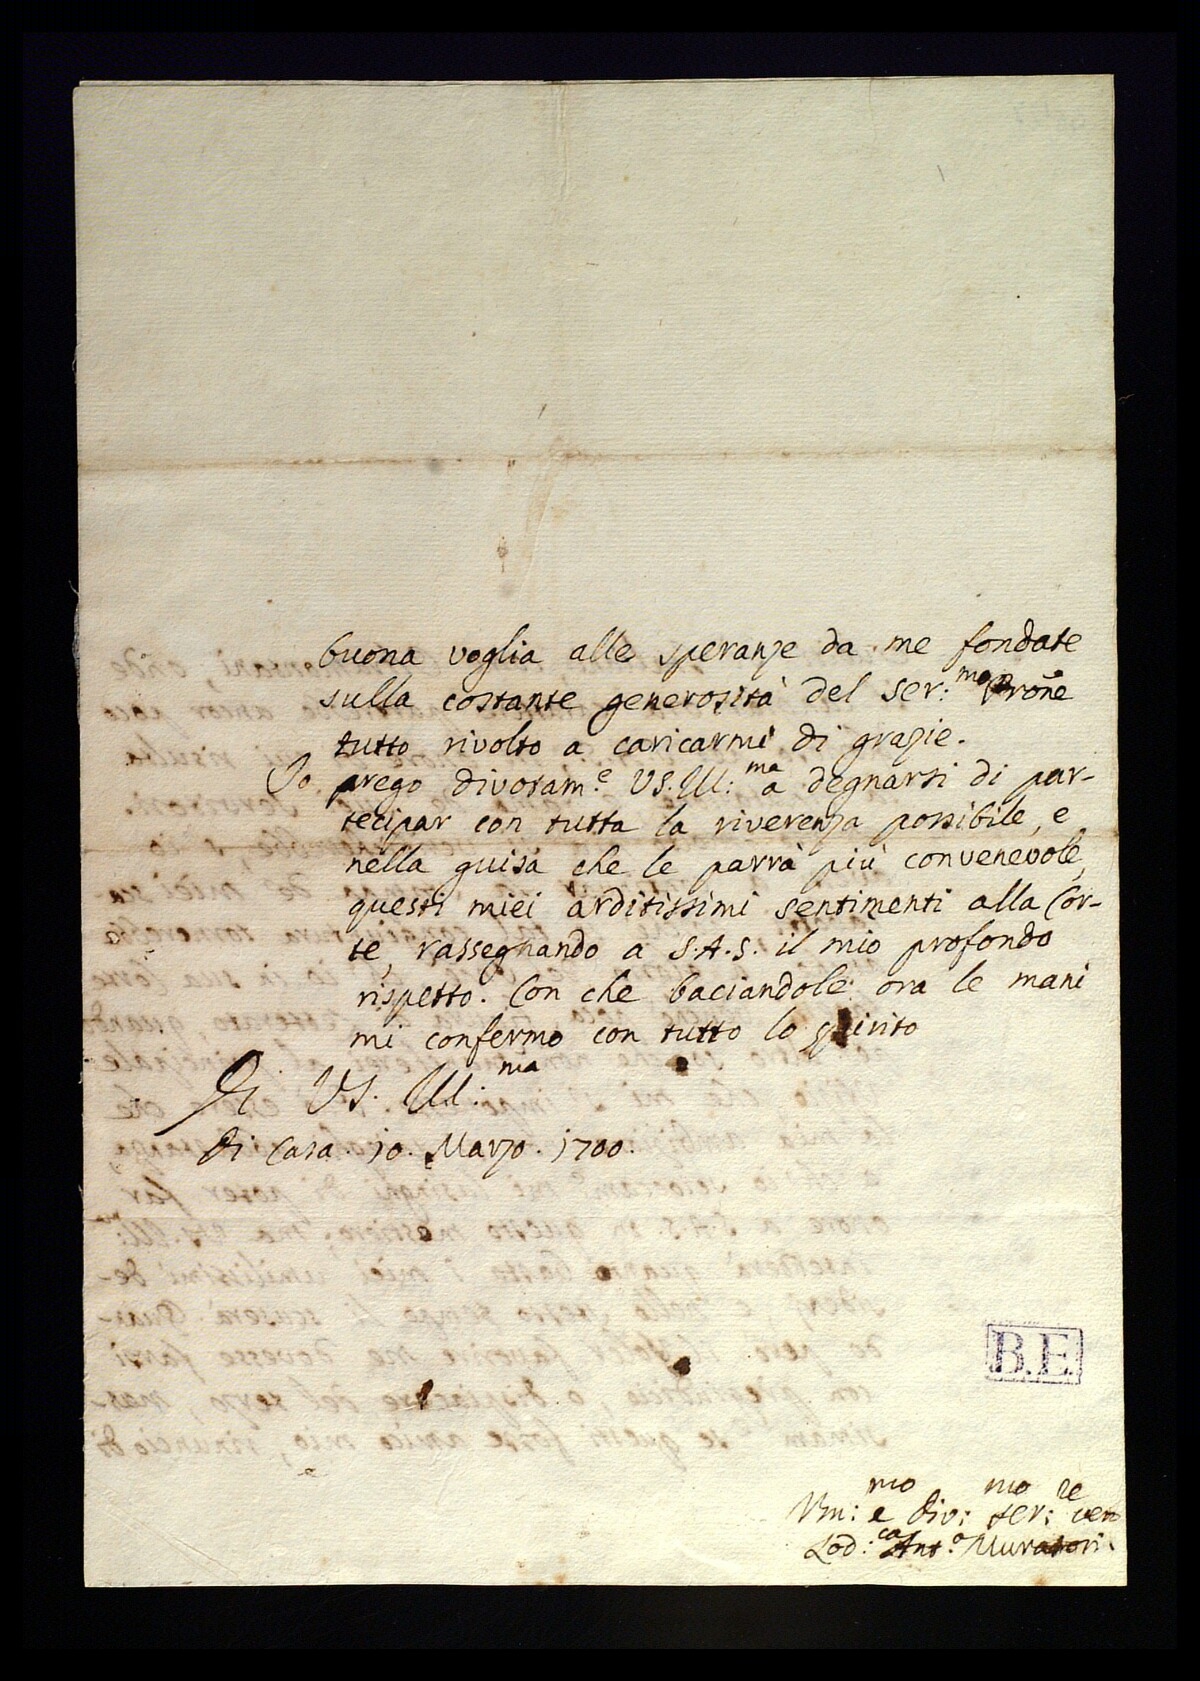 buona voglia alle speranze da me fondate
sulla costante generosità del Ser:mo Prõne
tutto rivolto a caricarmi di grazie.
Io prego divotam.e VS. Ill:ma a degnarsi di par-
tecipar con tutta la riverenza possibile, e
nella guisa che le parrà più convenevole,
questi miei arditissimi sentimenti alla Cor-
te, rassegnando a S.A.S. il mio profondo
rispetto. Con che baciandole ora le mani
mi confermo con tutto lo spirito
Di VS. Ill:ma
di Casa. 10. Marzo. 1700.
B.E.
Um:mo e div:mo ser:re vero
Lod:co Ant.o Muratori